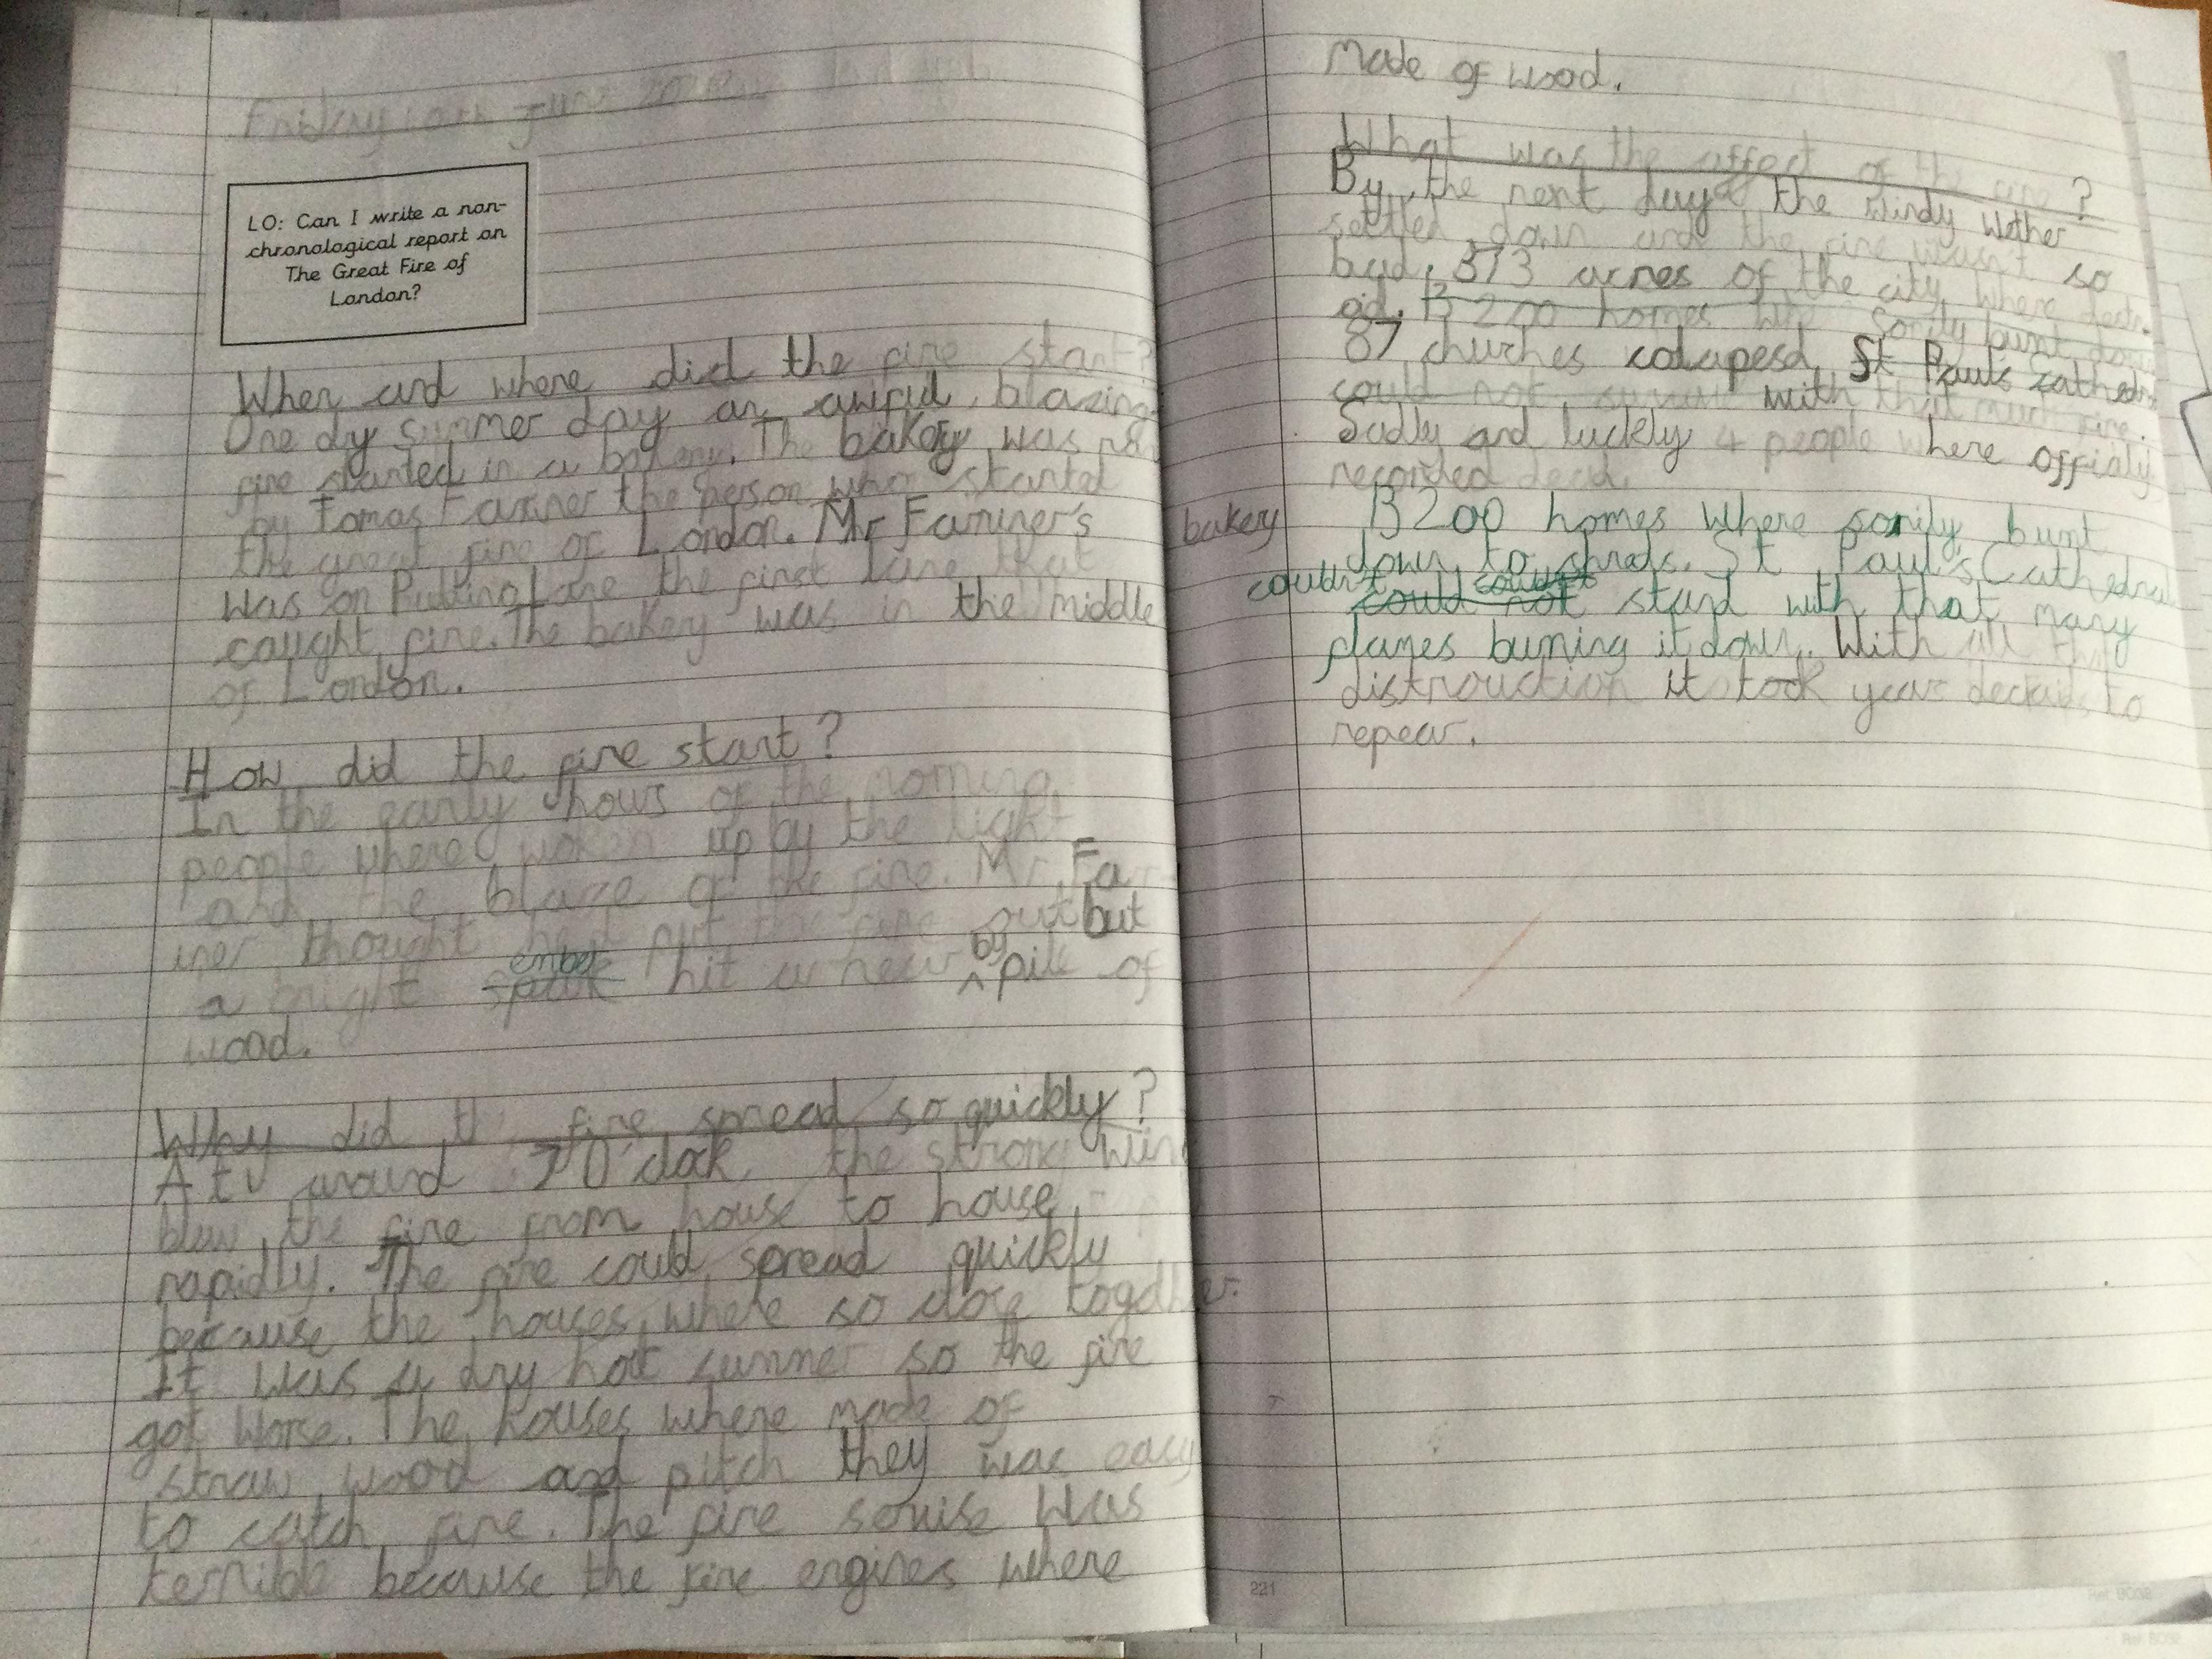 Friday June
LO: Can I write a non-
chronological report on
The Great Fire of
London?
When and where did the fire start?
One dry summer day an awful, blazing
fire started in a bakery. The bakery was run
by Tomas Farriner the person who started
the great fire of London. Mr Farriner's bakery
was on Puding Lane the first lane that
caught fire. The bakery was in the middle
of London.
How did the fire start?
In the early hours of the morning
people where woken up by the light
and the blaze of the fire. Mr Farr
iner thought he'd put the fire out but
a bright ember hit a near by pile of
wood.
Why did the fire spread so quickly?
At around 7 O'clock the strong wind
blew the fire from house to house
rapidly. The fire could spread quickly
because the houses where so close togdher.
It was a dry hot summer so the fire
got worse. The houses where made of
straw wood and pitch they was easy
to catch fire. The fire servise was
terrible because the fire engines where
made of wood.
What was the affect of the fire?
By the next day the windy wether
settled down and the fire wasn't so
bad. 373 acres of the city where
13200 homes burnt down
87 churches colapesd St Paul's cathedr
could not with that much fire.
Sadly and luckly 4 people where offialy
recorded dead.
13200 homes where burnt
down to shreds. St Paul's Cathedral
couldn't stand with that many
flames burning it down. With all this
distrouction it took year deckaids to
repear.
221